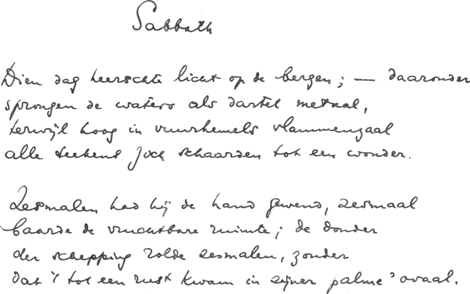 Sabbath
Dien dag heerschte licht op de bergen; — daaronder
sprongen de waters als dartel metaal,
terwijl hoog in vuurhemels vlammenzaal
alle teekens zich schaarden tot een wonder.
Zesmalen had hij de hand gewend, zesmaal
baarde de vruchtbare ruimte; de donder
der schepping rolde zesmalen, zonder
dat 't tot een rust kwam in zijner palme' ovaal.